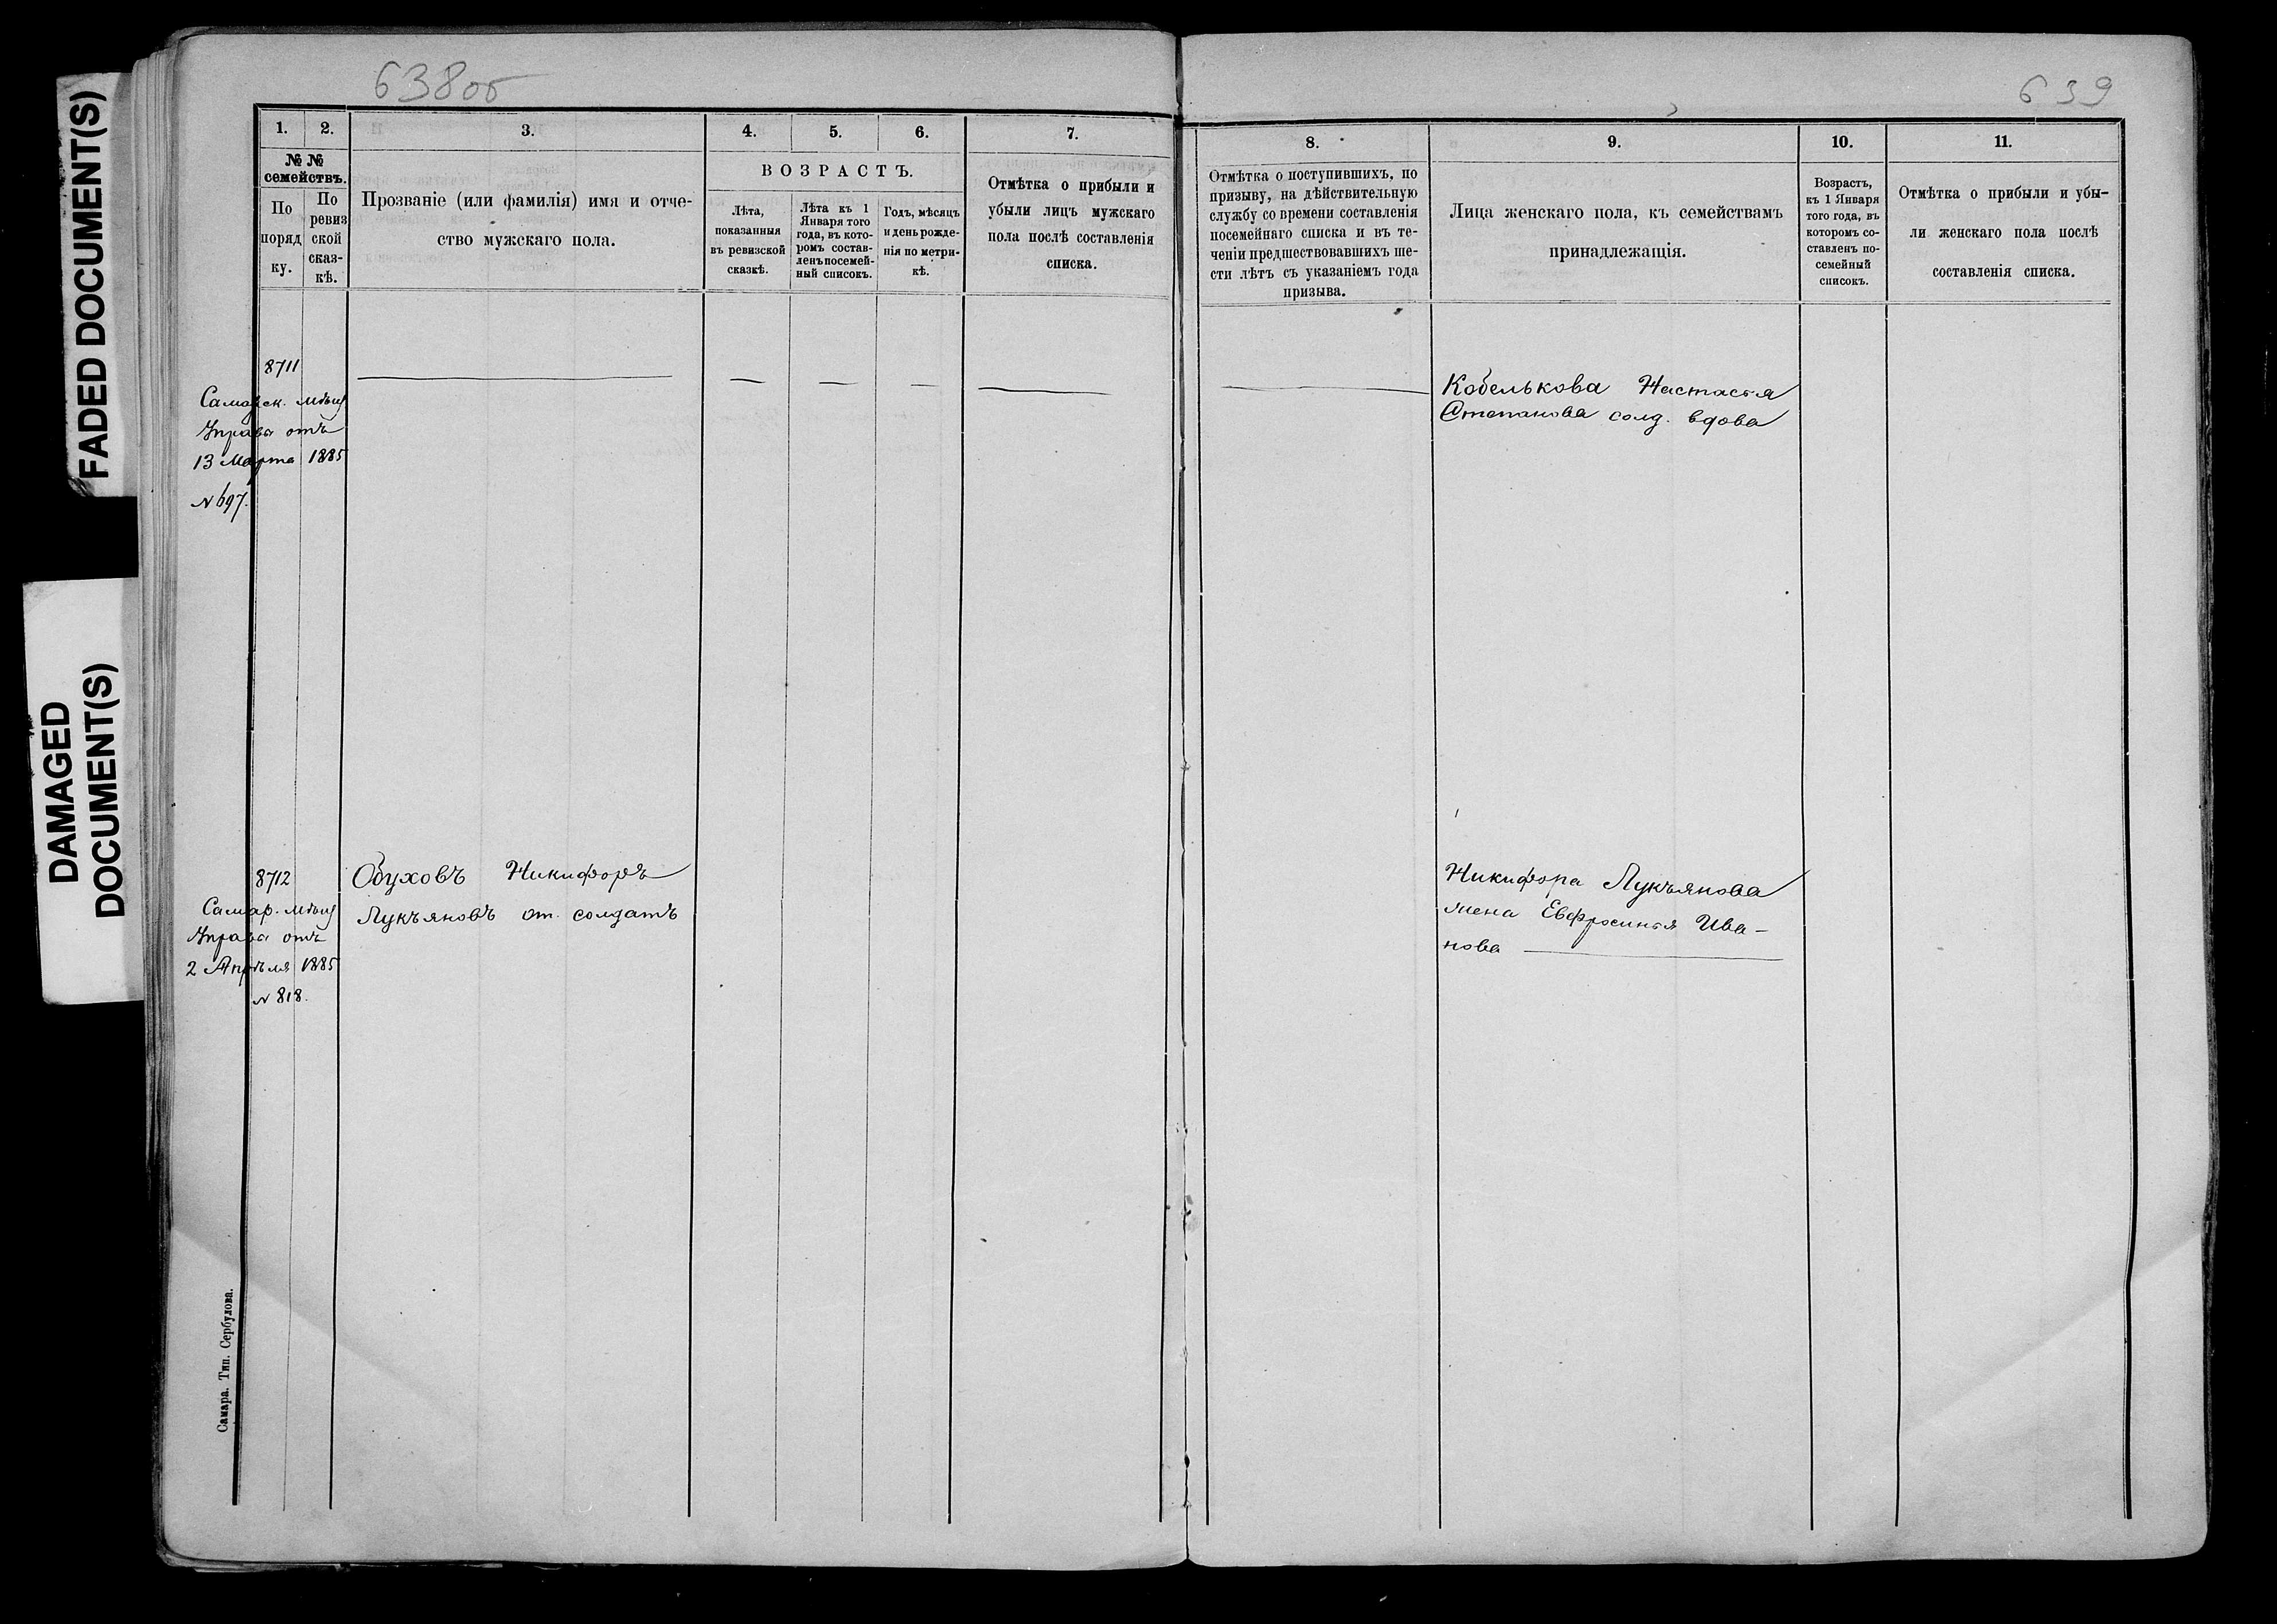 FADED DOCUMENT(S)
DAMAGED
DOCUMENT(S)
638об
639
1. 2. 3. 4. 5. 6. 7.
№ №
семействъ.
По
поряд
ку.
По
ревиз
ской
сказ-
кѣ.
Прозваніе (или фамилія) имя и отче-
ство мужскаго пола.
ВОЗРАСТЪ.
Лѣта,
показанныя
въ ревизской
сказкѣ.
Лѣта къ 1
Января того
года, въ кото-
ромъ состав-
ленъ посемей-
ный списокъ.
Годъ, мѣсяцъ
и день рожде-
нія по метри-
кѣ.
Отмѣтка о прибыли и
убыли лицъ мужскаго
пола послѣ составленія
списка.
8. 9. 10. 11.
Отмѣтка о поступившихъ, по
призыву, на дѣйствительную
службу со времени составленія
посемейнаго списка и въ те-
ченіи предшествовавшихъ ше-
сти лѣтъ съ указаніемъ года
призыва.
Лица женскаго пола, къ семействамъ
принадлежащія.
Возрастъ,
къ 1 Января
того года, въ
которомъ со-
ставленъ по-
семейный
списокъ.
Отмѣтка о прибыли и убы-
ли женскаго пола послѣ
составленія списка.
8711
Самарск. Мѣщ
Управа отъ
13 Марта 1885
N 697.
Кобелькова Настасья
Степанова солд. вдова
8712
Самар. Мѣщ
Управа отъ
2 Апрѣля 1885
N 818.
Обуховъ Никифоръ
Лукъяновъ от. солдатъ
Никифора Лукъянова
жена Евфросинья Ива-
нова
Самара. Тип. Сербулова.